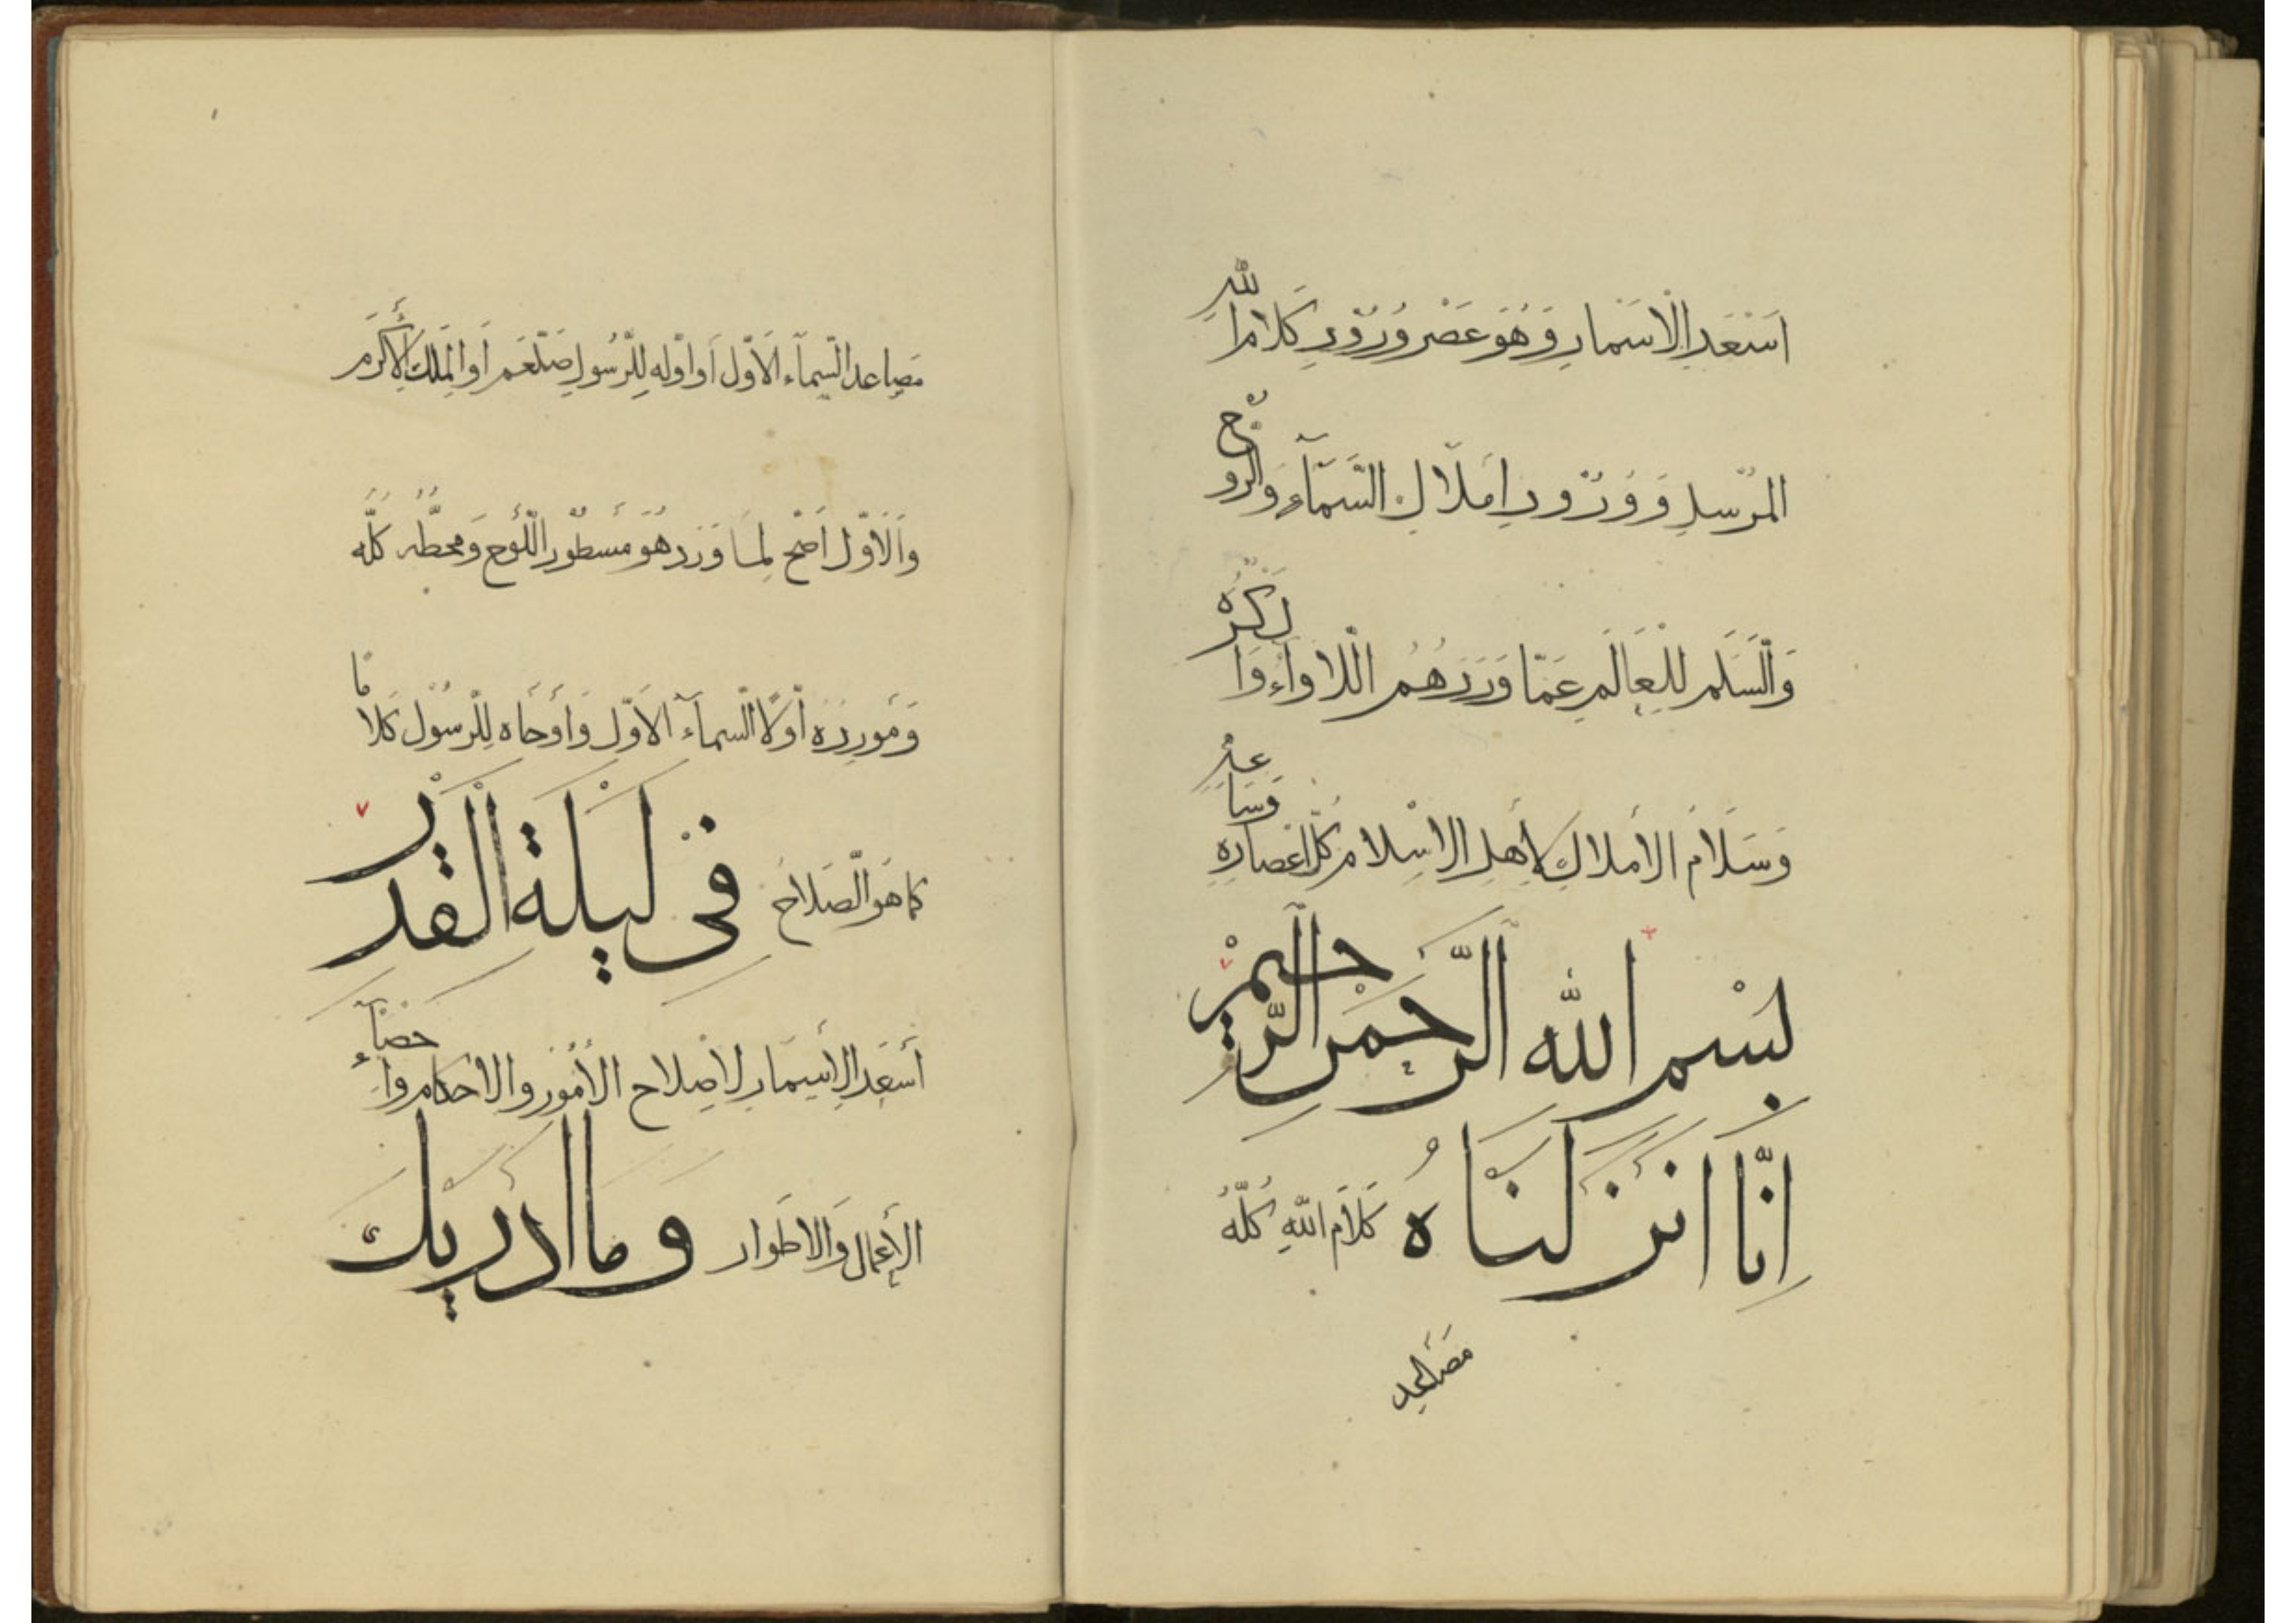 اَسْعَدِ الْاَسْمَارِ وَهُوَ عَصْرُ وُرُوْدِ كَلَامِ اللّٰهِ
الْمُرْسَلِ وَوُرُوْدِ اَمْلَاكِ السَّمَآءِ وَالرُّوْحِ
وَالسَّلَمِ لِلْعَالَمِ عَمَّا وَرَدَهُمُ اللَّاْوَآءُ وَاَكْرَهُ
وَسَلَامُ الْاَمْلَاكِ لِاَهْلِ الْاِسْلَامِ كُلَّ اَعْصَارِهِ وَسَاعِدِ
بِسْمِ اللّٰهِ الرَّحْمٰنِ الرَّحِيْمِ
اِنَّا اَنْزَلْنَاهُ كَلَامَ اللّٰهِ كُلَّهُ
مَصَاعِدِ
مَصَاعِدَ السَّمَآءِ الْاَوَّلِ اَوْ اَوَّلَهُ لِلرَّسُوْلِ صَلْعَمْ اَوِ الْمَلَكِ الْاَكْرَمِ
وَالْاَوَّلُ اَصَحُّ لِمَا وَرَدَ هُوَ مَسْطُوْرُ اللَّوْحِ وَمَحَطُّهُ كُلُّهُ
وَمَوْرِدُهُ اَوَّلًا السَّمَآءُ الْاَوَّلُ وَاَوْحَاهُ لِلرَّسُوْلِ كَلَامًا
كَمَا هُوَ الصَّلَاحُ فِيْ لَيْلَةِ الْقَدْرِ
اَسْعَدِ الْاَسْمَارِ لِاِصْلَاحِ الْاُمُوْرِ وَالْاَحْكَامِ وَاِحْصَآءِ
الْاَعْمَالِ وَالْاَطْوَارِ وَمَا اَدْرٰىكَ